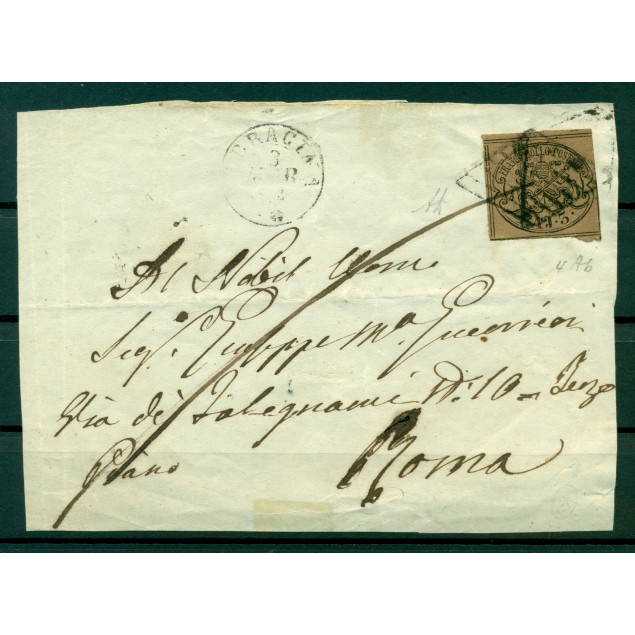 TERRACINA
3
FRANCO BOLLO POSTALE
BAJ. 3
4 Ab
Al Nobil Uomo
Sig.r Giuseppe Ma Guerrieri
Via de' Falegnami N: 10 = Terzo
Piano
Roma